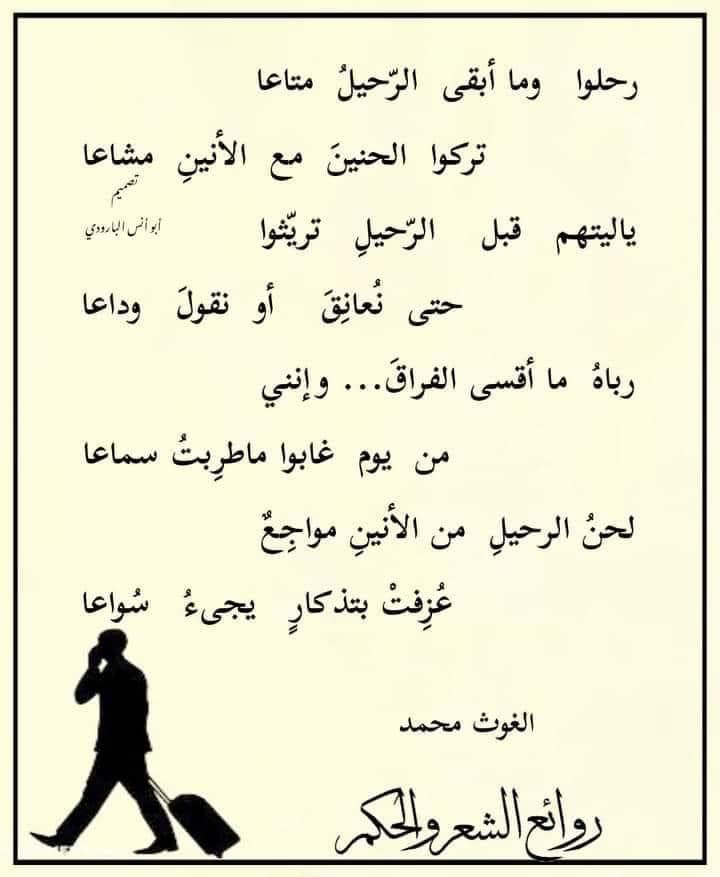 رحلوا وما أبقى الرّحيلُ متاعا
تركوا الحنينَ مع الأنينِ مشاعا
تصميم
أبو أنس البارودي
ياليتهم قبل الرّحيلِ تريّثوا
حتى نُعانِقَ أو نقولَ وداعا
رباهُ ما أقسى الفراقَ... وإنني
من يوم غابوا ماطرِبتُ سماعا
لحنُ الرحيلِ من الأنينِ مواجِعٌ
عُزِفتْ بتذكارٍ يجىءُ سُواعا
الغوث محمد
روائع الشعر والحكم